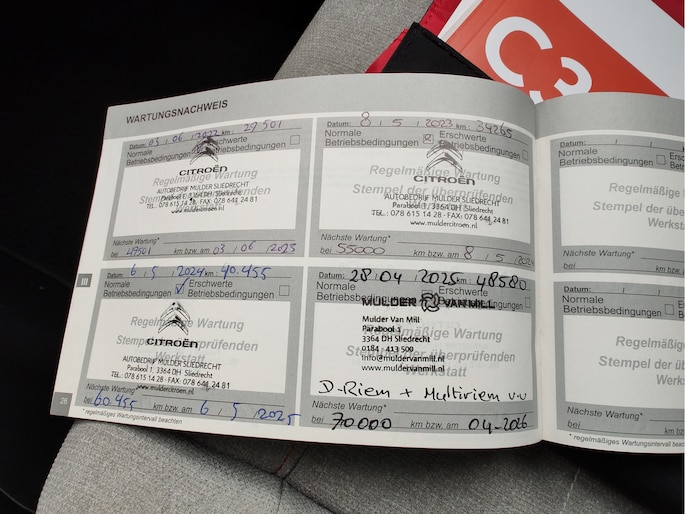 C3
WARTUNGSNACHWEIS
Datum: 03 / 06 / 2022 km: 27501
Normale Betriebsbedingungen
Erschwerte Betriebsbedingungen
Regelmäßige Wartung
Stempel der überprüfenden
Werkstatt
CITROËN
AUTOBEDRIJF MULDER SLIEDRECHT
Parabool 1, 3364 DH Sliedrecht
TEL.: 078 615 14 28 - FAX: 078 641 24 81
www.muldercitroen.nl
Nächste Wartung*
bei 47501 km bzw. am 03 / 06 / 2023
Datum: 8 / 5 / 2023 km: 34265
Normale Betriebsbedingungen
Erschwerte Betriebsbedingungen
Regelmäßige Wartung
Stempel der überprüfenden
CITROËN
AUTOBEDRIJF MULDER SLIEDRECHT
Parabool 1, 3364 DH Sliedrecht
TEL.: 078 615 14 28 - FAX: 078 641 24 81
www.muldercitroen.nl
Nächste Wartung*
bei 55000 km bzw. am 8 / 5 / 2024
Datum: 6 / 5 / 2024 km: 40.455
Normale Betriebsbedingungen
Erschwerte Betriebsbedingungen
Regelmäßige Wartung
Stempel der überprüfenden
Werkstatt
CITROËN
AUTOBEDRIJF MULDER SLIEDRECHT
Parabool 1, 3364 DH Sliedrecht
TEL.: 078 615 14 28 - FAX: 078 641 24 81
www.muldercitroen.nl
Nächste Wartung*
bei 60.455 km bzw. am 6 / 5 / 2025
28.04 2025 48580
Normale Betriebsbedingungen
Erschwerte Betriebsbedingungen
MULDER VAN MILL
Regelmäßige Wartung
Stempel der überprüfenden
Werkstatt
Mulder Van Mill
Parabool 1
3364 DH Sliedrecht
0184 - 413 500
info@muldervanmill.nl
www.muldervanmill.nl
D-Riem + Multiriem v.v
Nächste Wartung*
bei 70000 km bzw. am 04-2026
III
26
* regelmäßiges Wartungsintervall beachten
Datum: / /
Normale
Betriebsbedingungen
Regelmäßig
Stempel der über
Wer
Nächste Wartung*
bei km b
Datum: / /
Normale
Betriebsbedingungen
Regelmäß
Stempel der über
We
Nächste Wartung*
bei km
* regelmäßiges Wartungsintervall beachten